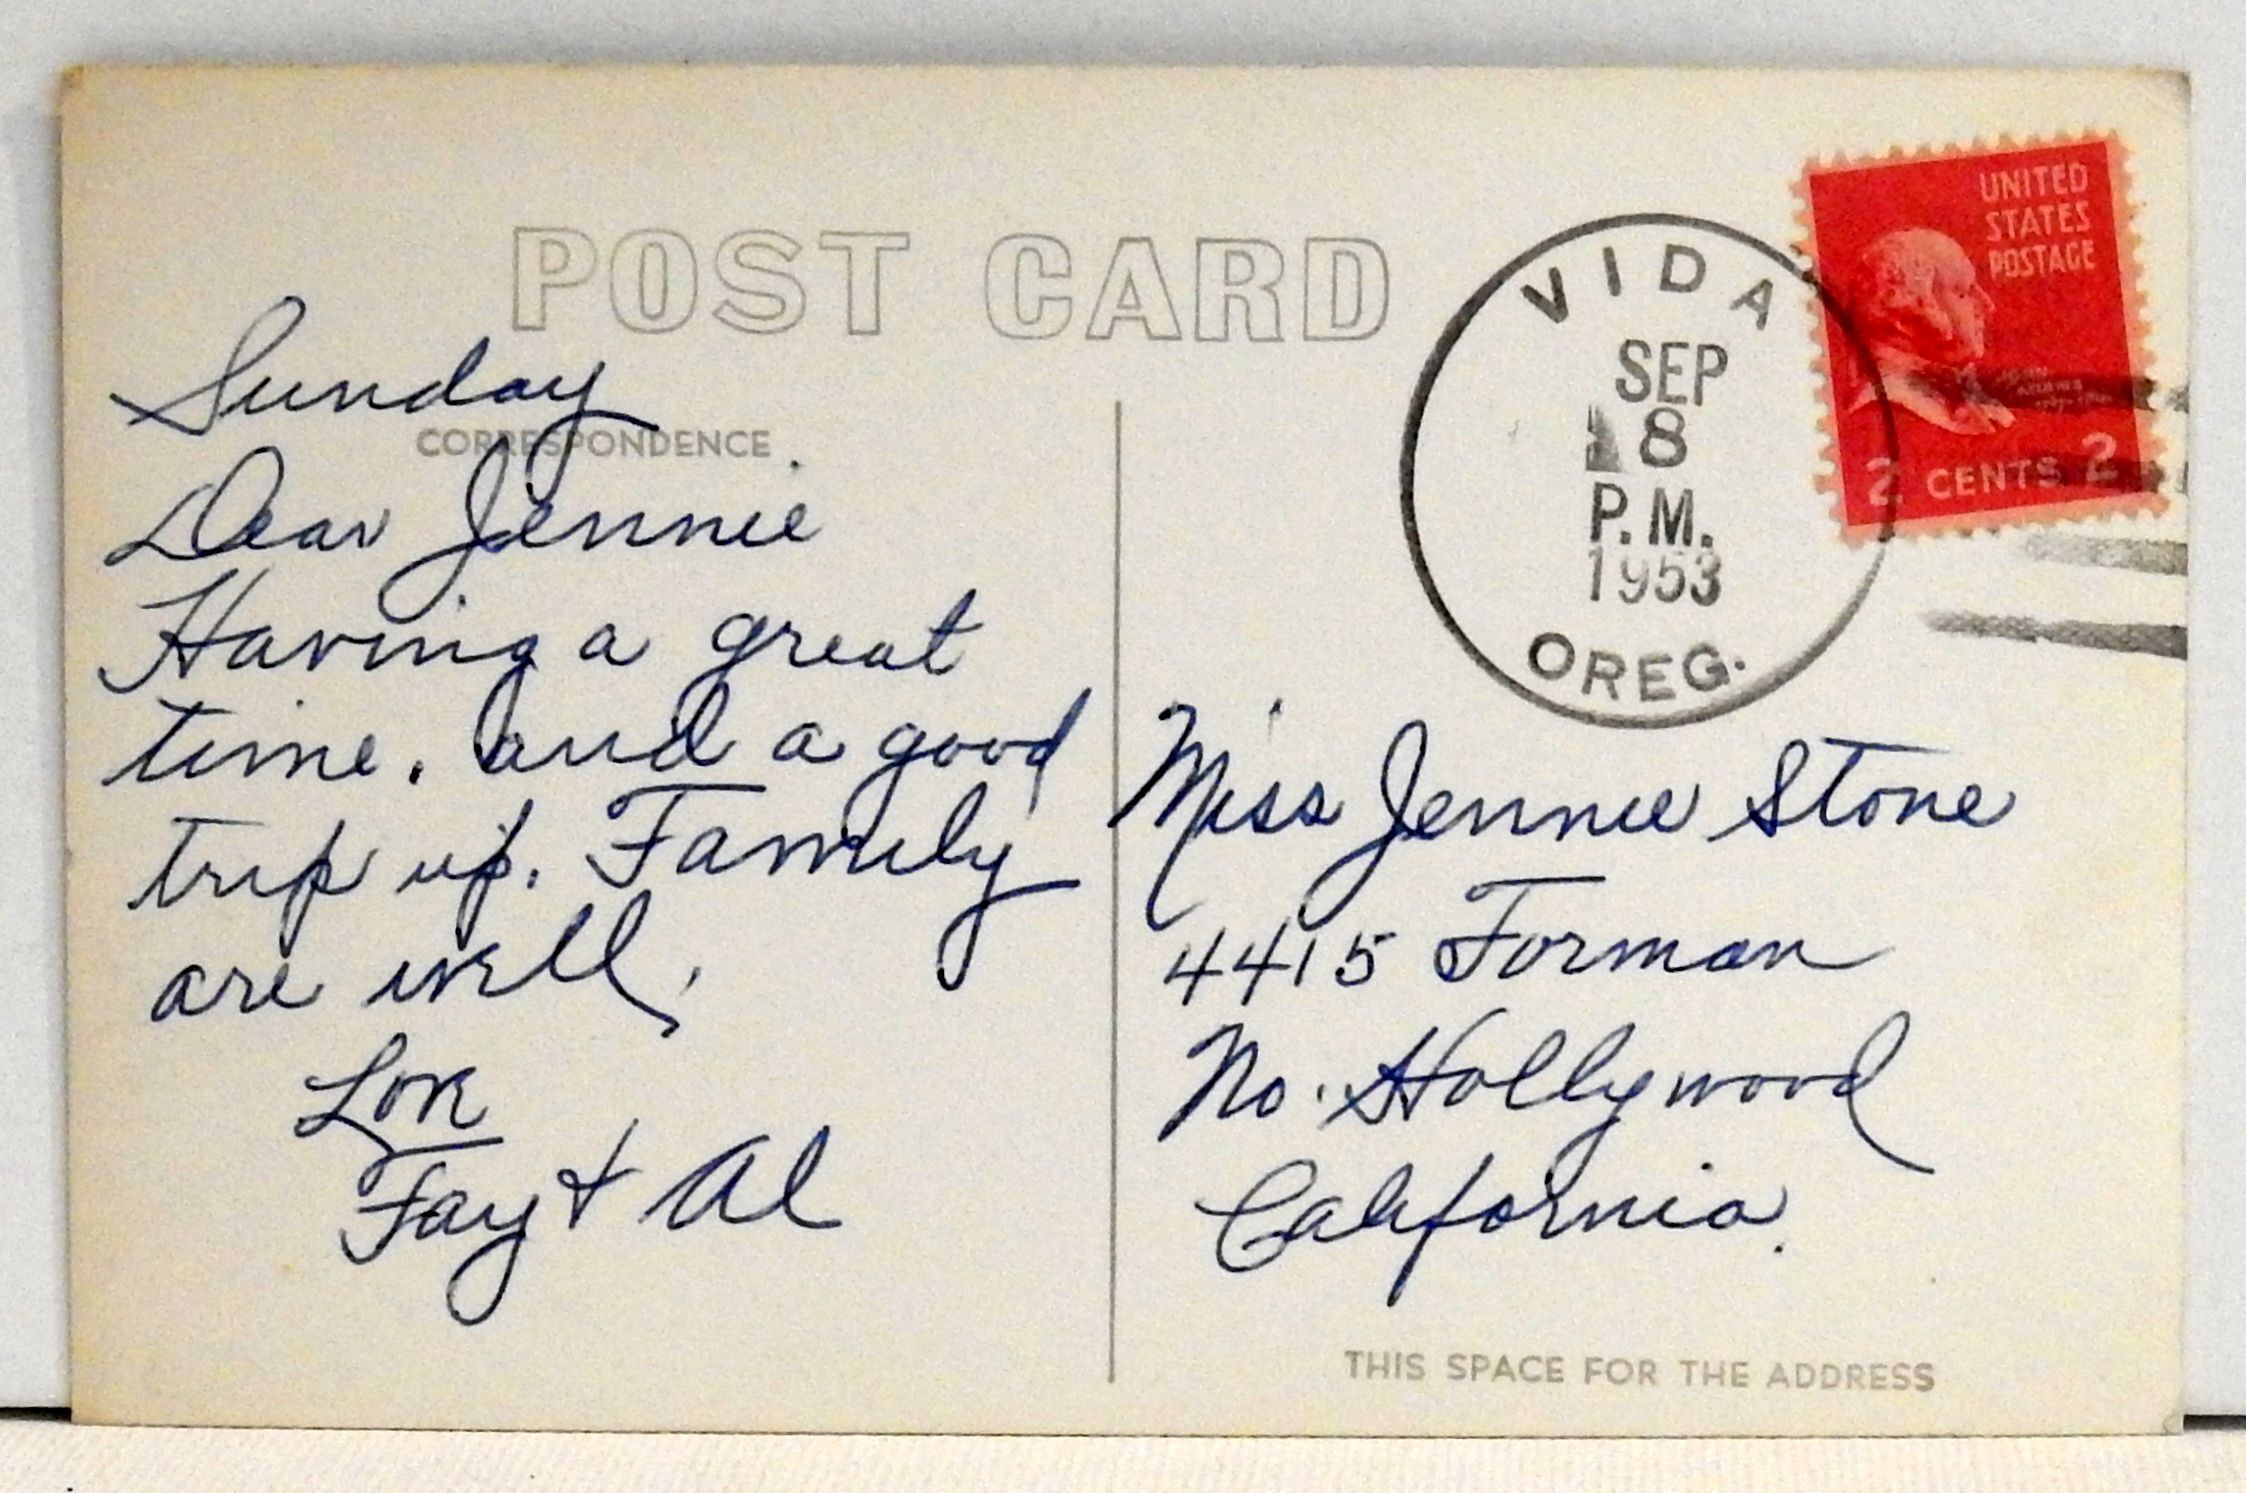 POST CARD
CORRESPONDENCE
Sunday
Dear Jennie
Having a great
time. and a good
trip up. Family
are well,
Love
Fay + Al
VIDA
SEP
8
P.M.
1953
OREG.
UNITED
STATES
POSTAGE
JOHN
ADAMS
2 CENTS 2
Miss Jennie Stone
4415 Forman
No. Hollywood
California.
THIS SPACE FOR THE ADDRESS